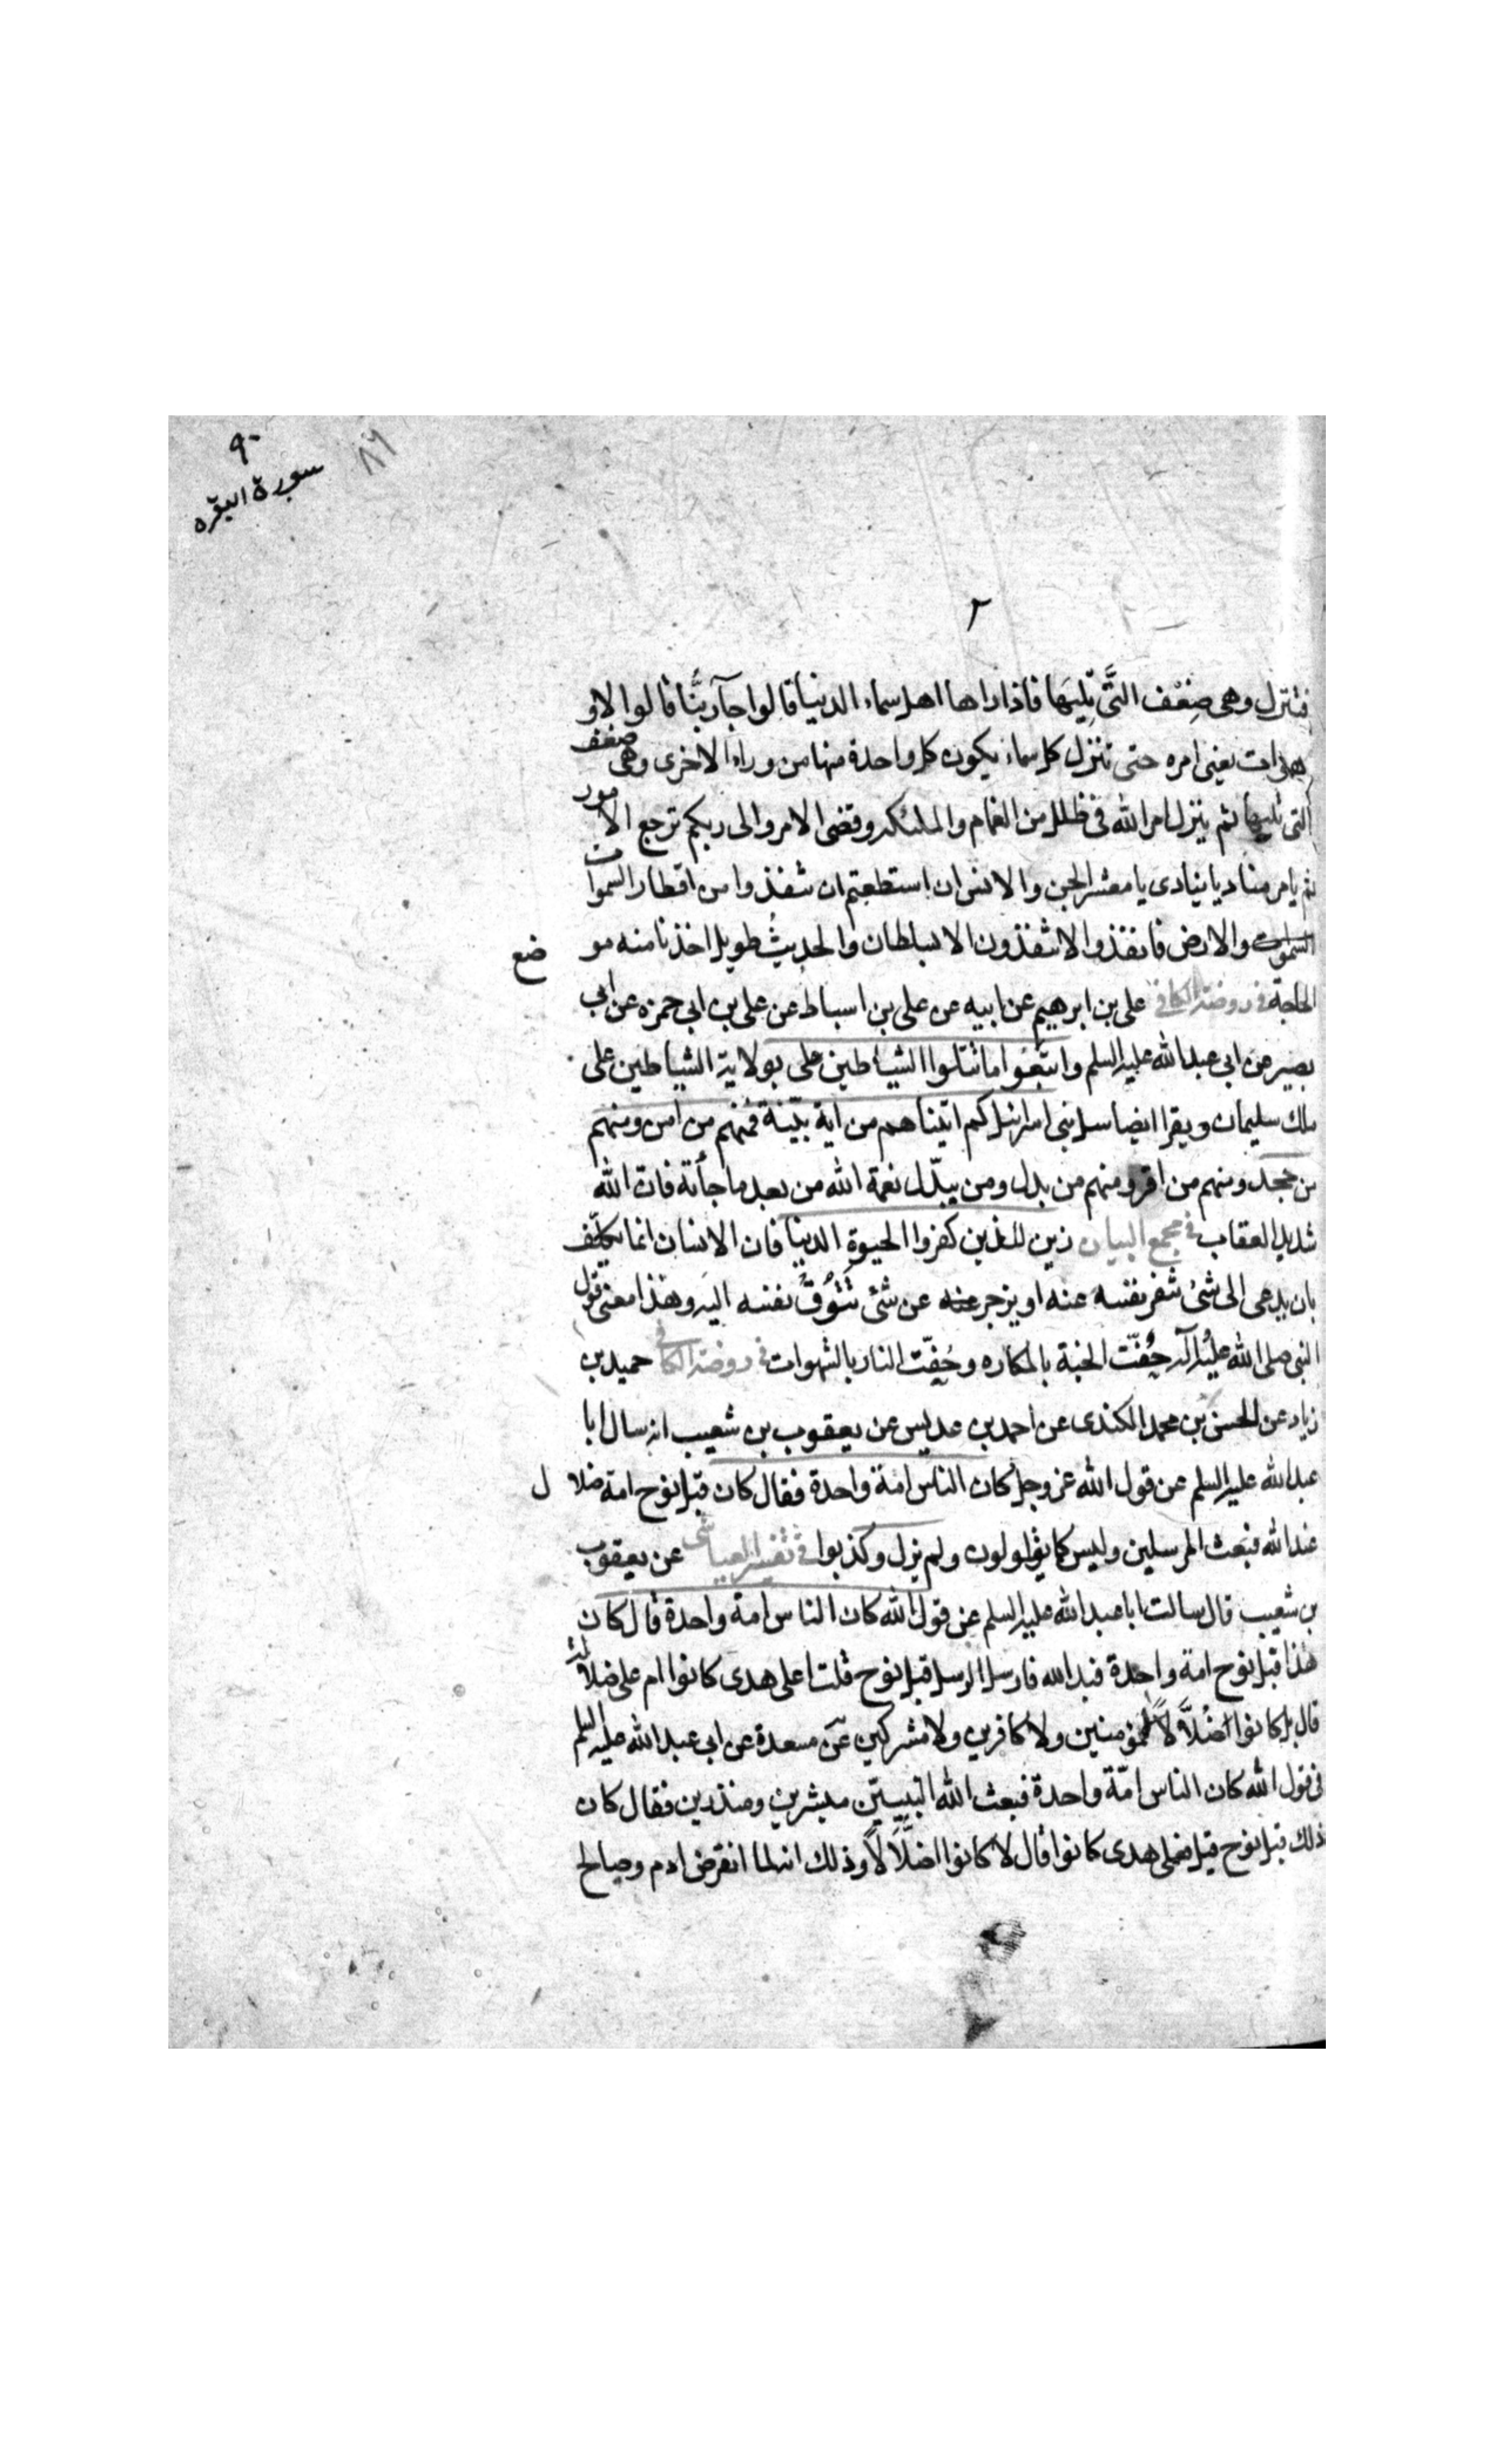 ٩٠
سورة البقره
٨٩
٢
فتنزل وهى ضِعْف التَّى تِليَها فاذا راها اهل سماء الدنيا قالوا جآء ربُّنا قالوا لا و
هوات يعنى امره حتى تنزل كل سماء يكون كل واحدة منها من وراء الاخرى وهى ضعف
التى تليها ثم ينزل امر الله فى ظلل من الغمام والملئكة وقضى الامر والى ربكم ترجع الامور
ثم يامر مناديا ينادى يا معشر الجن والانس ان استطعتم ان تنفذوا من اقطار السموات
السموات والارض فانفذوا لا تنفذون الا بسلطان والحديث طويل اخذنا منه موضع
الحاجة فى روضة الكافى على بن ابرهيم عن ابيه عن على بن اسباط عن على بن ابى حمزه عن ابى
بصير عن ابى عبد الله عليه السلم واتبعوا ما تتلوا الشياطين على بولاية الشياطين على
ملك سليمان ويقرا ايضا سل بنى اسرائيل كم اتيناهم من اية بيّنة فمنهم من امن ومنهم
من جحد ومنهم من اقر ومنهم من بدل ومن يبدّل نعمة الله من بعد ما جأته فان الله
شديد العقاب فى مجمع البيان زين للذين كفروا الحيوة الدنيا فان الانسان انما يكلّف
بان يدعى الى شئ تنفر نفسه عنه او يزجر عنه عن شئ تَتُوقُ نفسه اليه وهذا معنى قول
النبى صلى الله عليه وآله حُفّت الجنة بالمكاره وحُفّت النار بالشهوات فى روضة الكافى حميد بن
زياد عن الحسن بن محمد الكندى عن احمد بن عديس عن يعقوب بن شعيب انه سال ابا
عبد الله عليه السلم عن قول الله عز وجل كان الناس امة واحدة فقال كان قبل نوح امة ضلال
عند الله فبعث المرسلين وليس كما يقولون ولم يزل وكذبوا فى تفسير العياشى عن يعقوب
بن شعيب قال سالت ابا عبد الله عليه السلم عن قول الله كان الناس امة واحدة قال كان
هذا قبل نوح امة واحدة فبد الله فارسل الرسل قبل نوح قلت اعلى هدى كانوا ام على ضلالة
قال بل كانوا ضُلاَّلاً لا مؤمنين ولا كافرين ولا مشركين عن مسعدة عن ابى عبد الله عليه السلم
فى قول الله كان الناس امّة واحدة فبعث الله النبيين مبشرين ومنذرين فقال كان
ذلك قبل نوح قيل فعلى هدى كانوا قال لا كانوا ضلَّالاً وذلك انه لما انقرض ادم وصالح